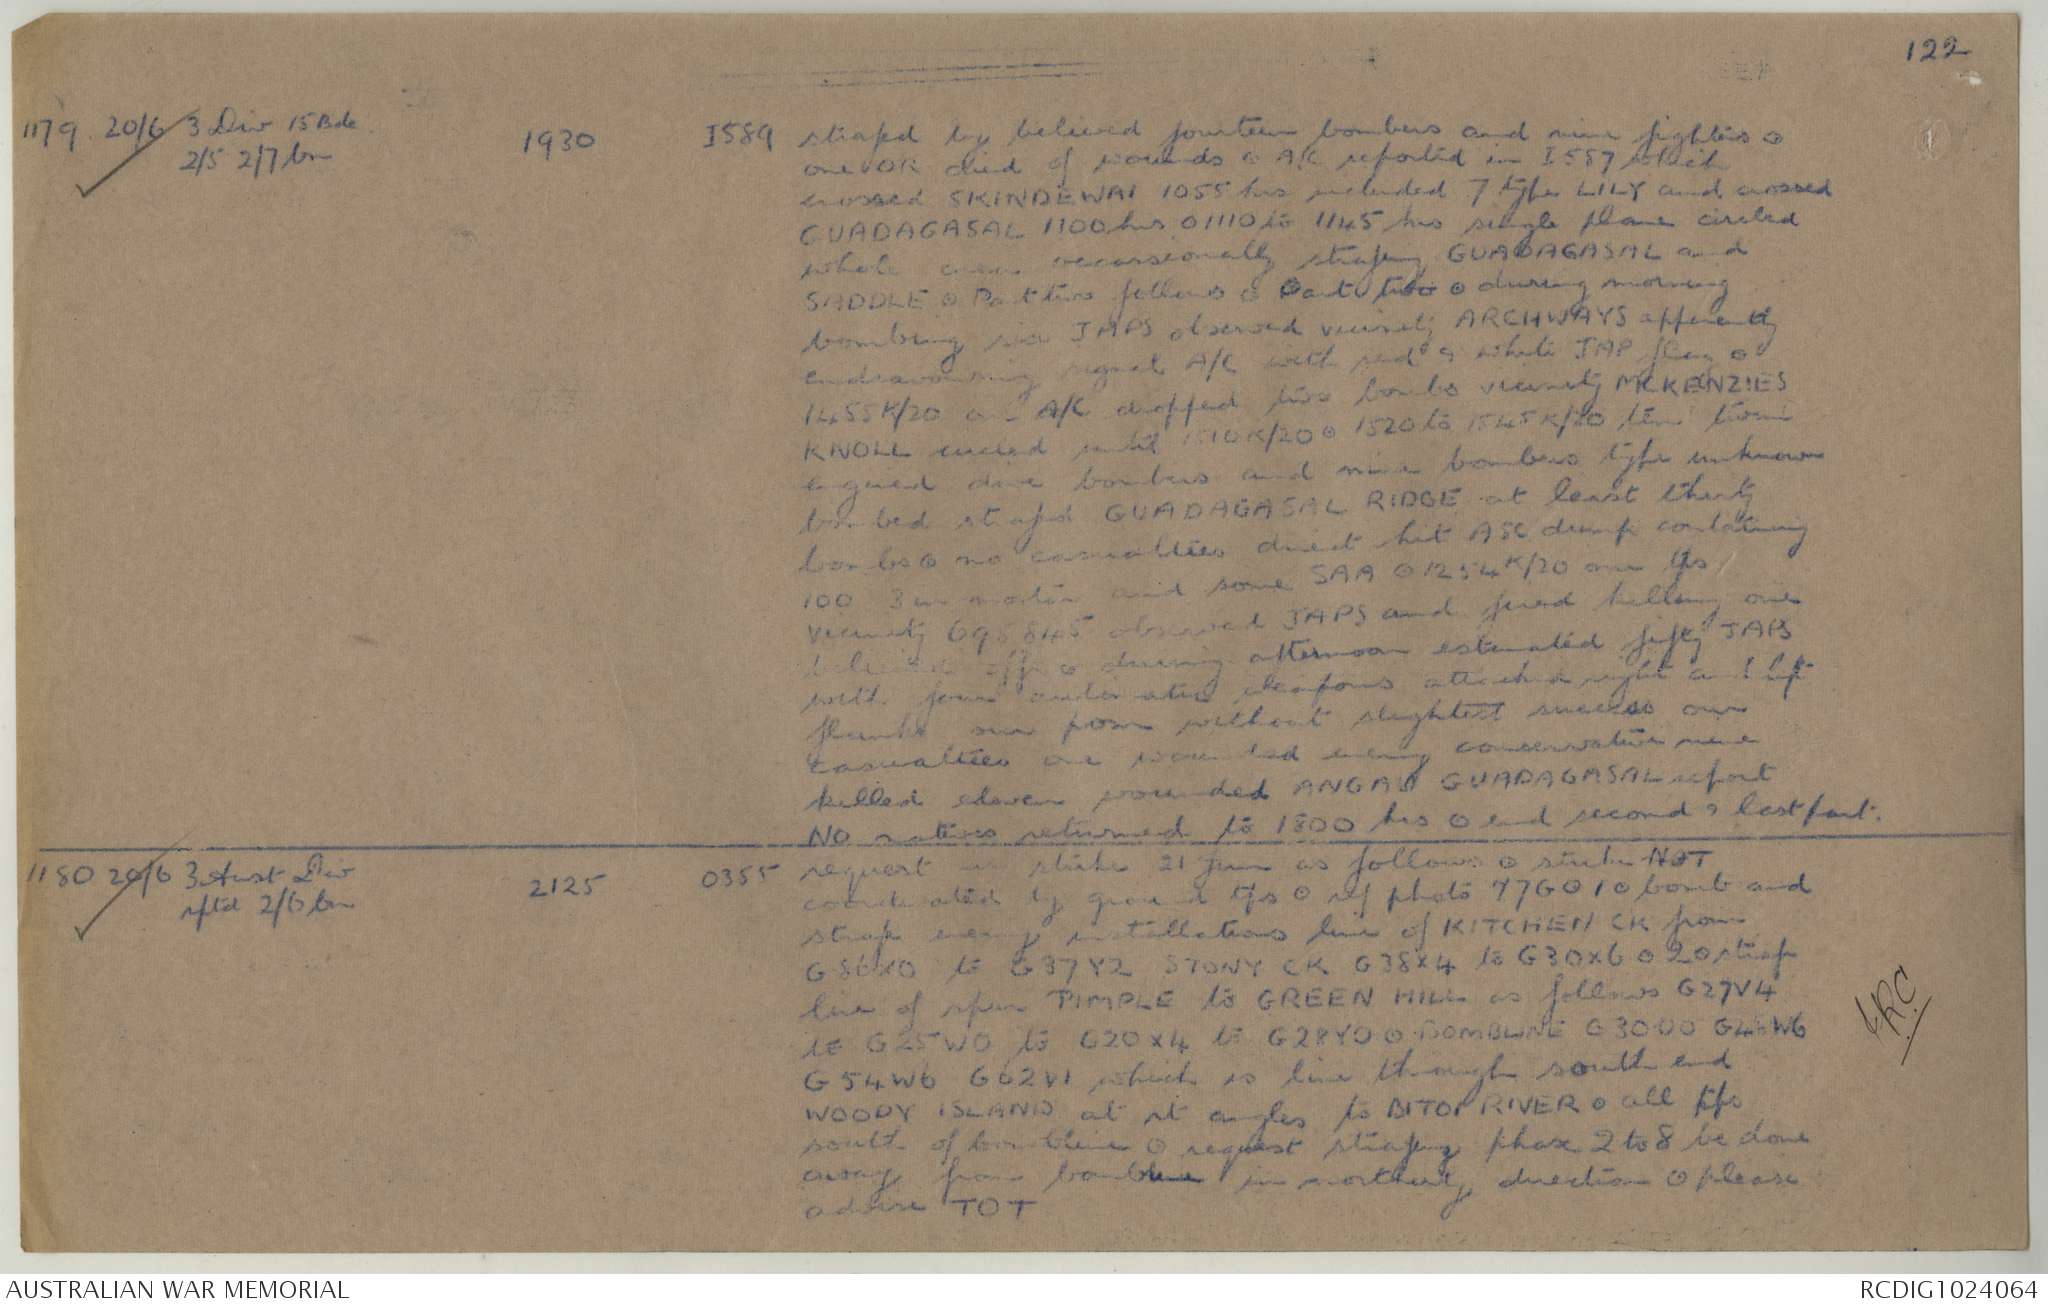 122
1179 20/6 3 Div 15 Bde 1930 I589 strafed by believed fourteen bombers and nine fighters ⊙
2/5 2/7 bn one OR died of wounds ⊙ A/C reported in I587 which
crossed SKINDEWAI 1055 hrs included 7 type LILY and crossed
GUADAGASAL 1100 hrs ⊙ 1110 to 1145 hrs single plane circled
whole area occassionally strafing GUADAGASAL and
SADDLE ⊙ Part two follows ⊙ Part two ⊙ during morning
bombing six JAPS observed vicinity ARCHWAYS apparently
endeavouring signal A/C with red & white JAP flag ⊙
1455K/20 one A/C dropped two bombs vicinity MCKENZIES
KNOLL circled until 1510K/20 ⊙ 1520 to 1545K/20 ten twin
engined dive bombers and nine bombers type unknown
bombed strafed GUADAGASAL RIDGE at least thirty
bombs ⊙ no casualties direct hit ASC dump containing
100 3 in mortar and some SAA ⊙ 1254K/20 our tps
vicinity 695845 observed JAPS and fired killing one
believed offr ⊙ during afternoon estimated fifty JAPS
with four automatic weapons attacked right and left
flanks our posn without slightest success our
casualties one wounded enemy conservative nine
killed eleven wounded ANGAU GUADAGASAL report
NO natives returned to 1800 hrs ⊙ end second & last part.
1180 20/6 3 Aust Div 2125 0355 request air strike 21 Jun as follows ⊙ strike NOT
rptd 2/6 bn coordinated by ground tps ⊙ ref photo 77G ⊙ 1 ⊙ bomb and
strafe enemy installations line of KITCHEN CK from
G86X0 to G37Y2 STONY CK G38X4 to G30X6 ⊙ 2 ⊙ strafe
line of spur PIMPLE to GREEN HILL as follows G27V4
to G25W0 to G20X4 to G28Y0 ⊙ BOMBLINE G30U0 G46W6
G54W6 G62V1 which is line through south end
WOODY ISLAND at rt angles to BITOI RIVER ⊙ all tps
south of bombline ⊙ request strafing phase 2 to 8 be done
away from bombline in northerly direction ⊙ please
advise TOT
AUSTRALIAN WAR MEMORIAL RCDIG1024064